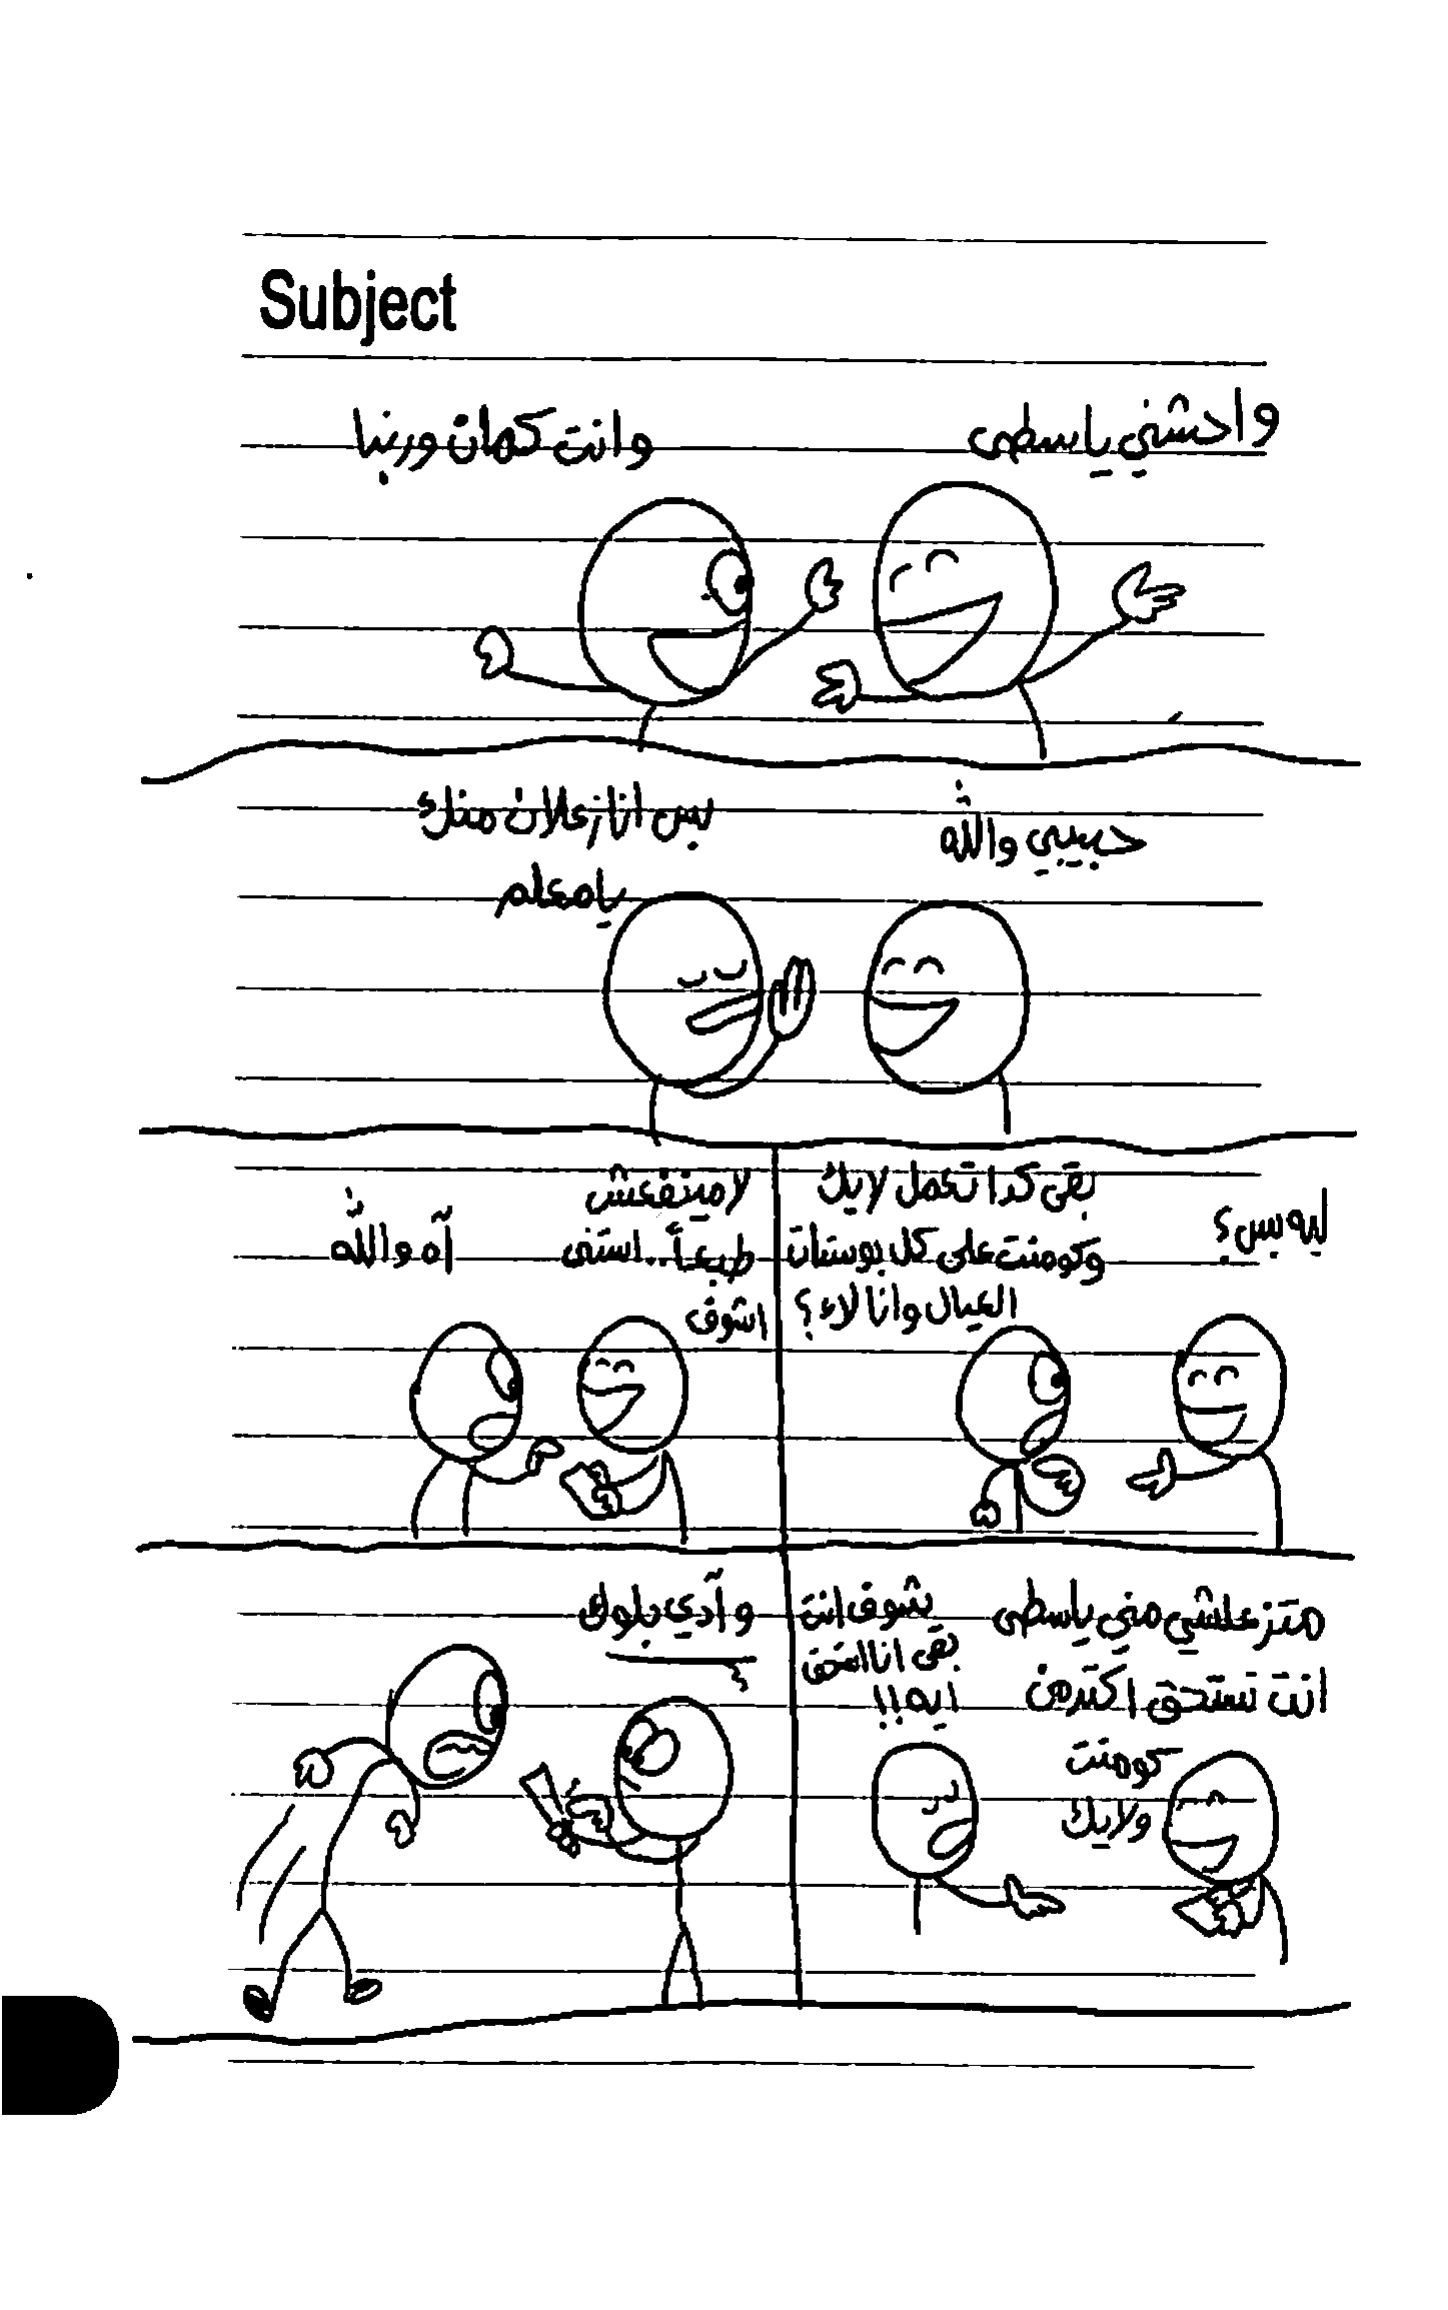 Subject
واحشني ياسطى
وانت كمان وربنا
حبيبي والله
بس انا زعلان منك
يامعلم
ليه بس؟
بقى كدا تعمل لايك
وكومنت على كل بوستات
العيال وانا لاء؟
لا مينفعش
طبعاً.. استنى
اشوف
آه والله
متزعلشي مني ياسطى
انت تستحق اكتر من
كومنت
ولايك
يشوف انت
بقى انا استحق
ايه!!
وآدي بلوك